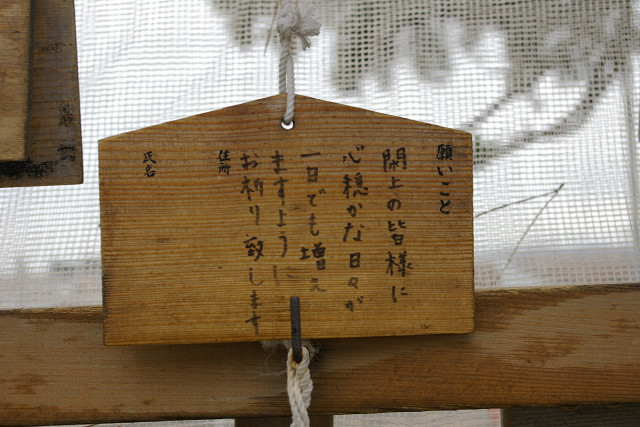 願いこと
閖上の皆様に
心穏かな日々が
一日でも増え
ますように
お祈り致します
住所
氏名